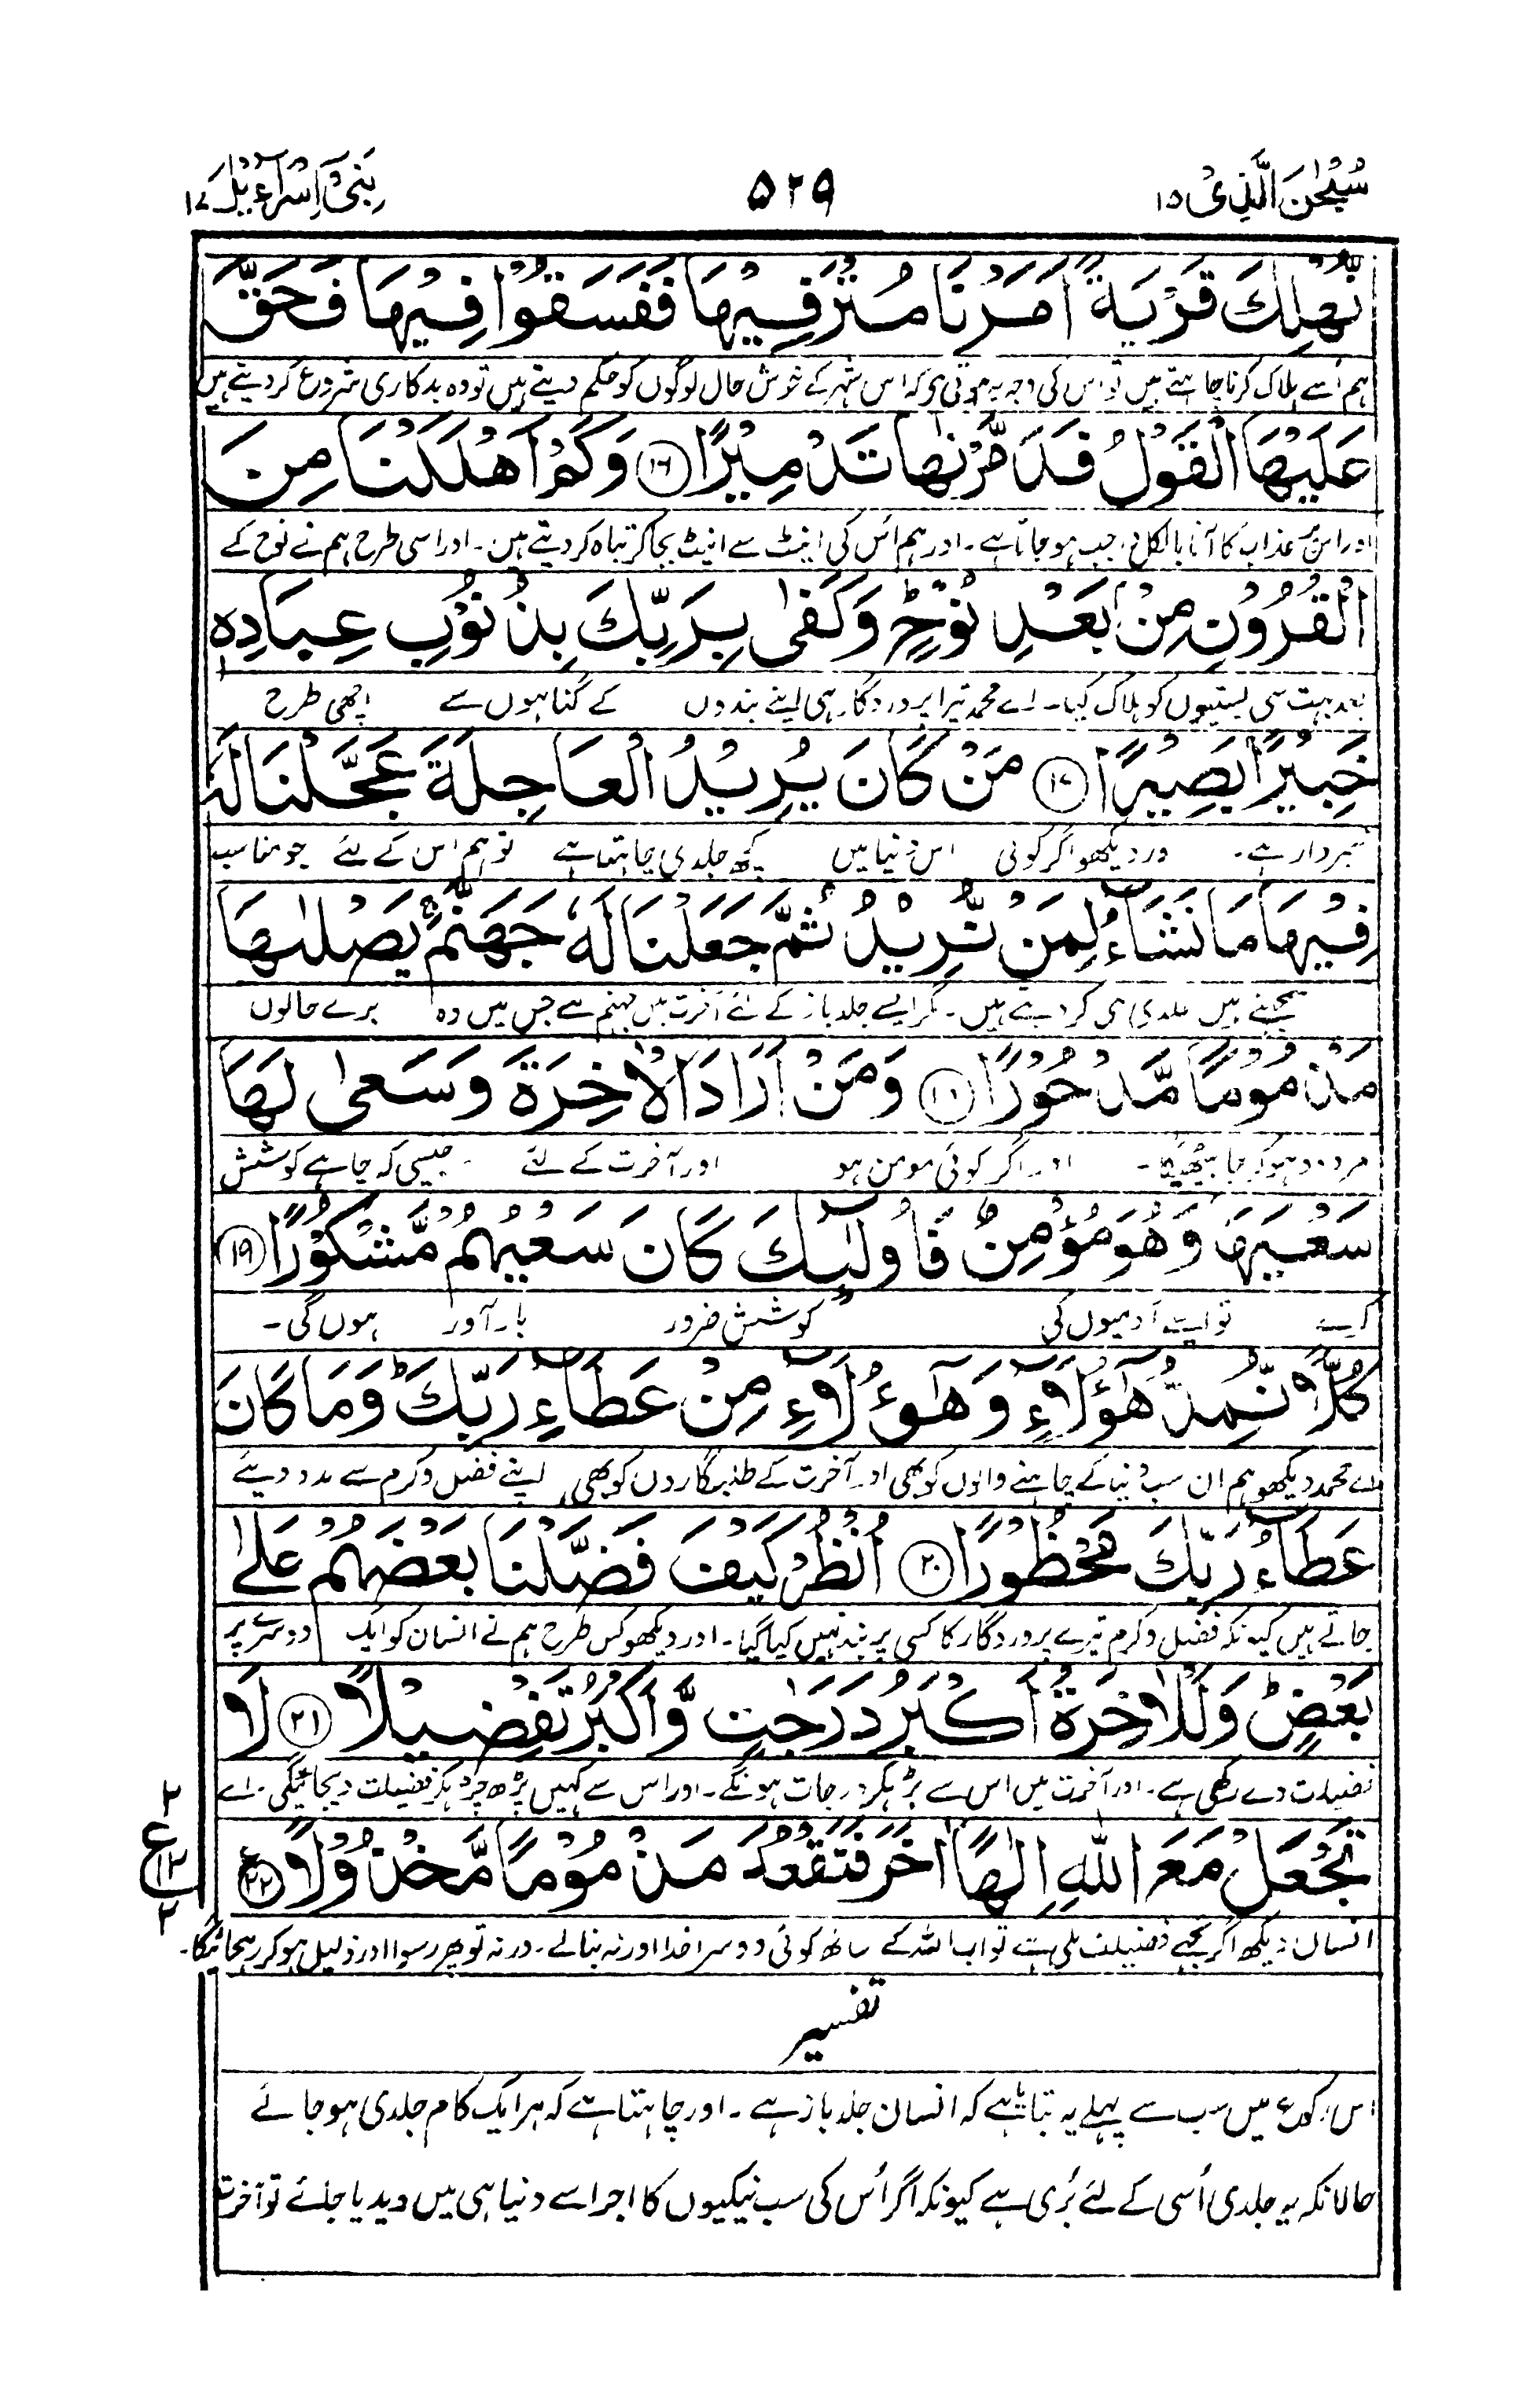 سُبْحٰنَ الَّذِیْ ۱۵
۵۲۹
بَنِیْٓ اِسْرَآءِیْل ۱۷
نُّهْلِكَ قَرْیَةً اَمَرْنَا مُتْرَفِیْهَا فَفَسَقُوْا فِیْهَا فَحَقَّ
ہم اُسے ہلاک کرنا چاہتے ہیں تو اس کی وجہ یہ ہوتی ہے کہ اس شہر کے خوش حال لوگوں کو حکم دیتے ہیں تو وہ بدکاری شروع کر دیتے ہیں
عَلَیْهَا الْقَوْلُ فَدَمَّرْنٰهَا تَدْمِیْرًا ⑯ وَكَمْ اَهْلَكْنَا مِنَ
اور اس پر عذاب کا آنا بالکل واجب ہو جاتا ہے۔ اور ہم اُس کی اینٹ سے اینٹ بجا کر تباہ کر دیتے ہیں۔ اور اسی طرح ہم نے نوح کے
الْقُرُوْنِ مِنْۢ بَعْدِ نُوْحٍ ؕ وَكَفٰی بِرَبِّكَ بِذُنُوْبِ عِبَادِهٖ
بعد بہت سی بستیوں کو ہلاک کیا۔ اے محمد تیرا پروردگار ہی اپنے بندوں کے گناہوں سے اچھی طرح
خَبِیْرًۢا بَصِیْرًا ⑰ مَنْ كَانَ یُرِیْدُ الْعَاجِلَةَ عَجَّلْنَا لَهٗ
خبردار ہے۔ اور دیکھو اگر کوئی اس دنیا میں کچھ جلدی چاہتا ہے تو ہم اس کے لئے جو مناسب
فِیْهَا مَا نَشَآءُ لِمَنْ نُّرِیْدُ ثُمَّ جَعَلْنَا لَهٗ جَهَنَّمَ ۚ یَصْلٰىهَا
سمجھتے ہیں جلدی ہی کر دیتے ہیں۔ مگر ایسے جلد باز کے لئے آخرت میں جہنم ہے جس میں وہ برے حالوں
مَذْمُوْمًا مَّدْحُوْرًا ⑱ وَمَنْ اَرَادَ الْاٰخِرَةَ وَسَعٰی لَهَا
مردود ہو کر جا بیٹھیگا۔ اور اگر کوئی مومن ہو اور آخرت کے لئے جیسی کہ چاہے کوشش
سَعْیَهَا وَهُوَ مُؤْمِنٌ فَاُولٰٓىِٕكَ كَانَ سَعْیُهُمْ مَّشْكُوْرًا ⑲
کرے تو ایسے آدمیوں کی کوشش ضرور بار آور ہوں گی۔
كُلًّا نُّمِدُّ هٰۤؤُلَآءِ وَهٰۤؤُلَآءِ مِنْ عَطَآءِ رَبِّكَ ؕ وَمَا كَانَ
اے محمد دیکھو ہم ان سب دنیا کے چاہنے والوں کو بھی اور آخرت کے طلبگاروں کو بھی اپنے فضل و کرم سے مدد دیئے
عَطَآءُ رَبِّكَ مَحْظُوْرًا ⑳ اُنْظُرْ كَیْفَ فَضَّلْنَا بَعْضَهُمْ عَلٰی
جاتے ہیں کیونکہ فضل و کرم تیرے پروردگار کا کسی پر بند نہیں کیا گیا۔ اور دیکھو کس طرح ہم نے انسان کو ایک دوسرے پر
بَعْضٍ ؕ وَلَلْاٰخِرَةُ اَكْبَرُ دَرَجٰتٍ وَّاَكْبَرُ تَفْضِیْلًا ㉑ لَا
فضیلت دے رکھی ہے۔ اور آخرت میں اس سے بڑھکر درجات ہونگے۔ اور اس سے کہیں بڑھ چڑھکر فضیلت دیجائیگی۔ اے
تَجْعَلْ مَعَ اللّٰهِ اِلٰهًا اٰخَرَ فَتَقْعُدَ مَذْمُوْمًا مَّخْذُوْلًا ㉒ ع
۲ ع ۱۲ ۲
انسان! دیکھ اگر تجھے فضیلت ملی ہے تو اب اللہ کے ساتھ کوئی دوسرا خدا اور نہ بنا لے۔ ورنہ تو پھر رسوا اور ذلیل ہو کر رہجائیگا۔
تفسیر
اس رکوع میں سب سے پہلے یہ بتایا ہے کہ انسان جلد باز ہے۔ اور چاہتا ہے کہ ہر ایک کام جلدی ہو جائے
حالانکہ یہ جلدی اُسی کے لئے بُری ہے کیونکہ اگر اُس کی سب نیکیوں کا اجر اسے دنیا ہی میں دیدیا جائے تو آخرت